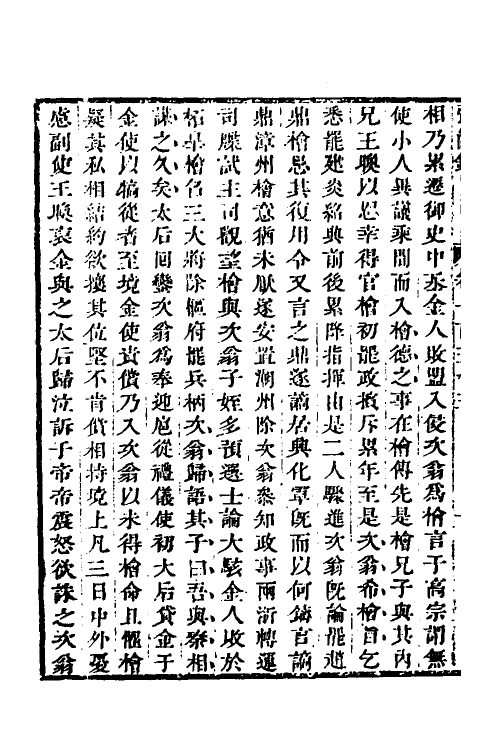 相乃累遷御史中丞金人敗盟入侵次翁爲檜言于高宗謂無
使小人異議乘間而入檜德之事在檜傳先是檜兄子與其內
兄王㬇以恩幸得官檜初罷政擯斥累年至是次翁希檜旨乞
悉罷建炎紹興前後累降指揮由是二人驟進次翁旣論罷趙
鼎檜忌其復用令又言之鼎遂謫居興化軍旣而以何鑄言謫
鼎漳州檜意猶未厭遂安置潮州除次翁叅知政事兩浙轉運
司牒試主司觀望檜與次翁子姪多預選士論大駭金人敗於
柘皋檜召三大將除樞府罷兵柄次翁歸語其子曰吾與秦相
謀之久矣太后回鑾次翁爲奉迎扈從禮儀使初大后貸金于
金使以犒從者至境金使責償乃入次翁以未得檜命且懼檜
疑其私相結約欲攘其位堅不肯償相持境上凡三日中外憂
慮副使王㬇裒金與之太后歸泣訴于帝帝震怒欲誅之次翁